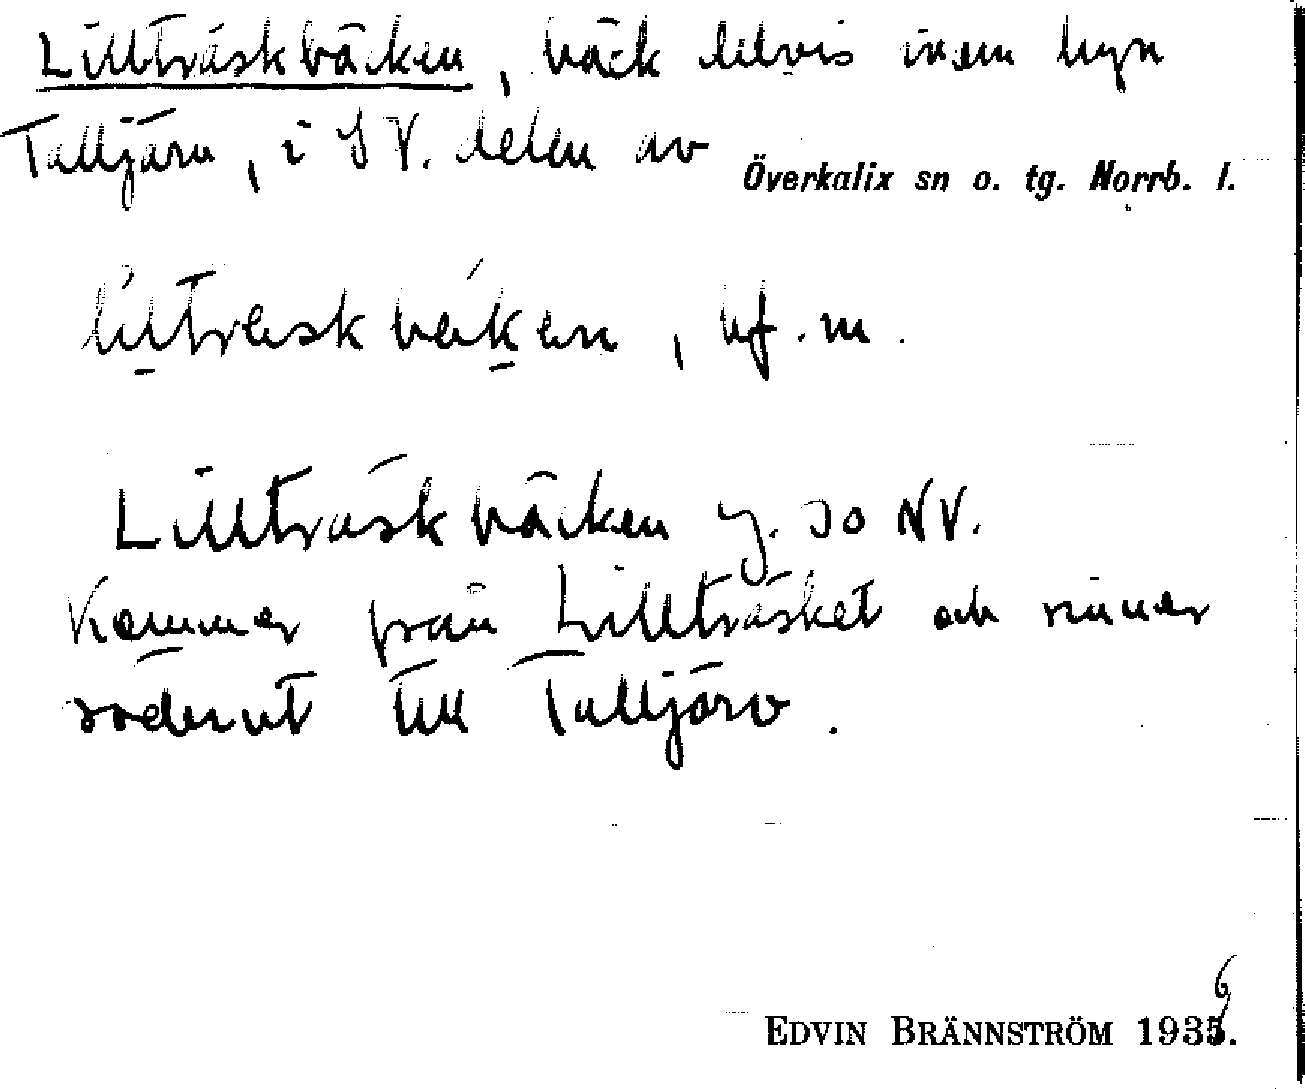 Lillträskbäcken, bäck delvis inom byn
Talljärv, i SV. delen av Överkalix sn o. tg. Norrb. l.
bf. m.
Lillträskbäcken y. 30 NV.
Kommer från Lillträsket och rinner
söderut till Talljärv.
EDVIN BRÄNNSTRÖM 1936.